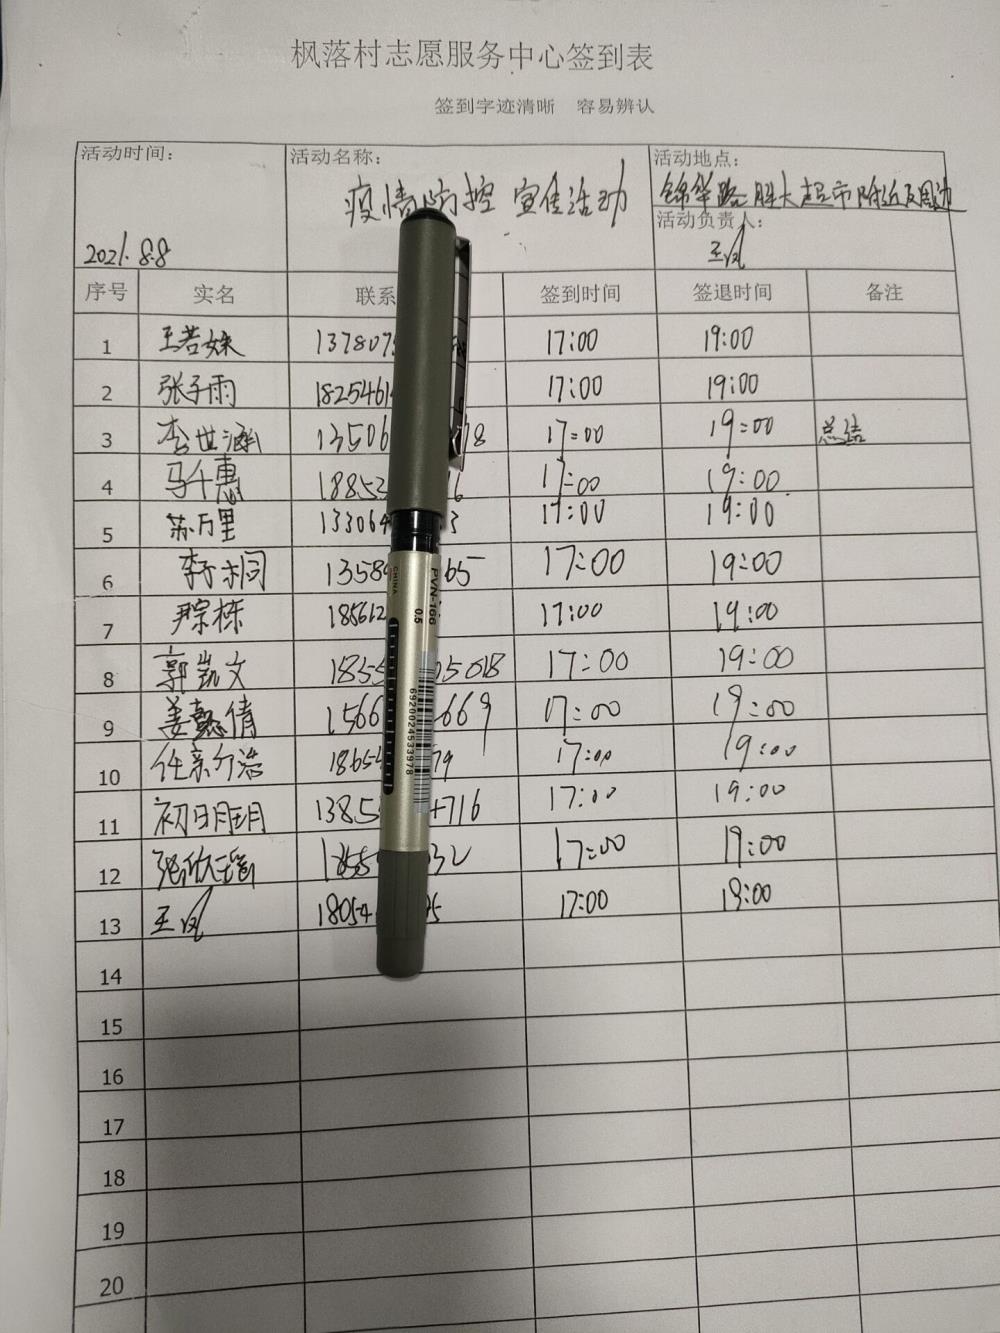 枫落村志愿服务中心签到表
签到字迹清晰 容易辨认
活动时间: 活动名称: 活动地点:
疫情防控宣传活动 锦华路胜大超市附近及周边
活动负责人:
2021.8.8 王凤
序号 实名 联系 签到时间 签退时间 备注
1 王若姝 137807 17:00 19:00
2 张子雨 1825461 17:00 19:00
3 李世涵 13506 78 17:00 19:00 总结
4 马千惠 18853 6 17:00 19:00
5 苏万里 133064 3 17:00 19:00
6 1358 65 17:00 19:00
7 尹宗栋 185612 17:00 19:00
8 郭凯文 1855 05018 17:00 19:00
9 姜懿倩 1566 669 17:00 19:00
10 任亲 1865 79 17:00 19:00
11 初日月玥 1385 4716 17:00 19:00
12 张欣瑶 1855 32 17:00 19:00
13 王凤 18054 5 17:00 19:00
14
15
16
17
18
19
20
CHINA
PVN-166
0.5
6920024533978